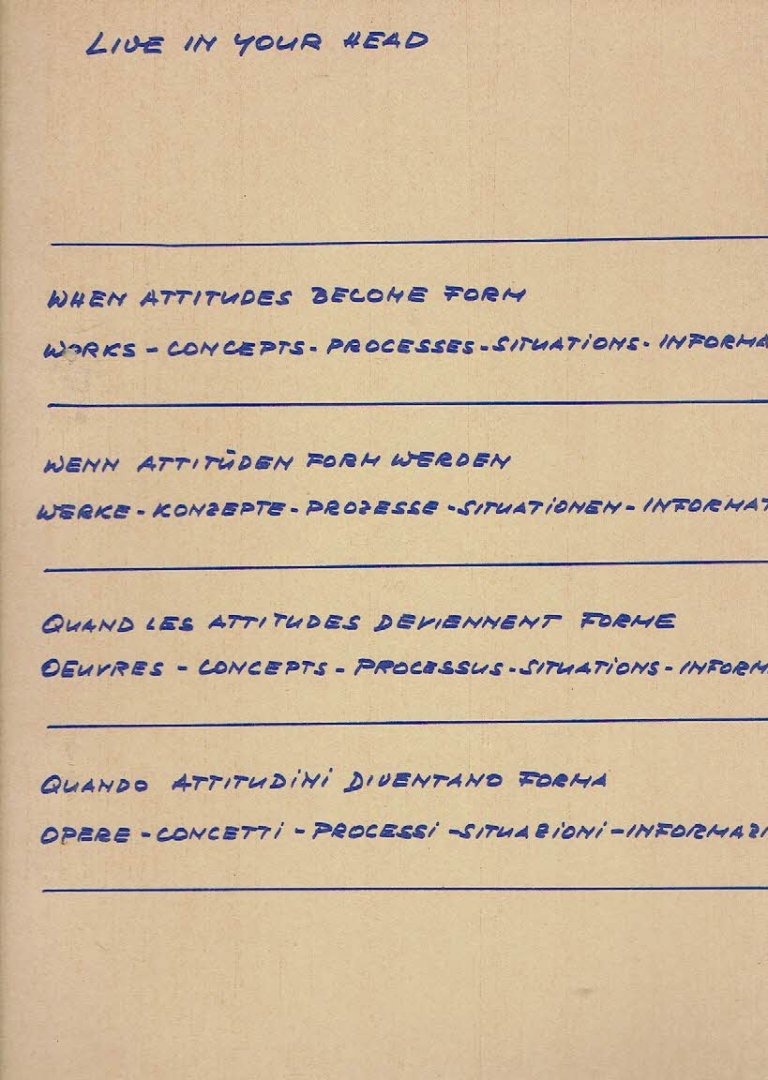 LIVE IN YOUR HEAD
WHEN ATTITUDES BECOME FORM
WORKS – CONCEPTS - PROCESSES - SITUATIONS - INFORMA
WENN ATTITÜDEN FORM WERDEN
WERKE - KONZEPTE - PROZESSE - SITUATIONEN - INFORMAT
QUAND LES ATTITUDES DEVIENNENT FORME
OEUVRES - CONCEPTS - PROCESSUS - SITUATIONS - INFORM
QUANDO ATTITUDINI DIVENTANO FORMA
OPERE - CONCETTI - PROCESSI - SITUAZIONI - INFORMAZI